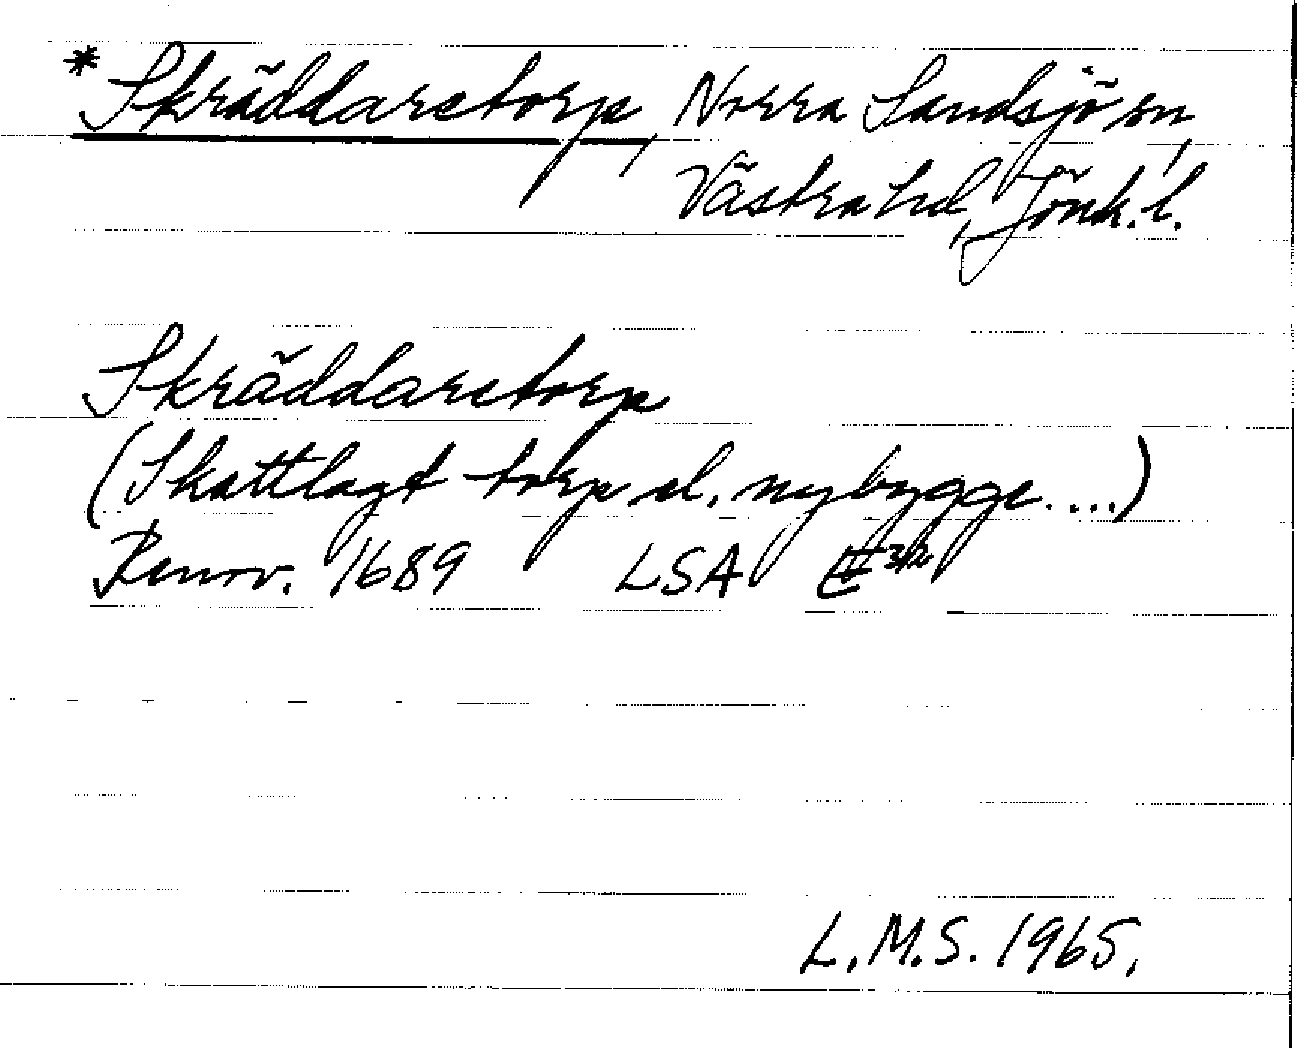 * Skräddaretorp, Norra Sandsjö sn,
Västra hd, Jönk. l.
Skräddaretorp
(Skattlagt torp el. nybygge....)
Renov. 1689 LSA
L.M.S. 1965.